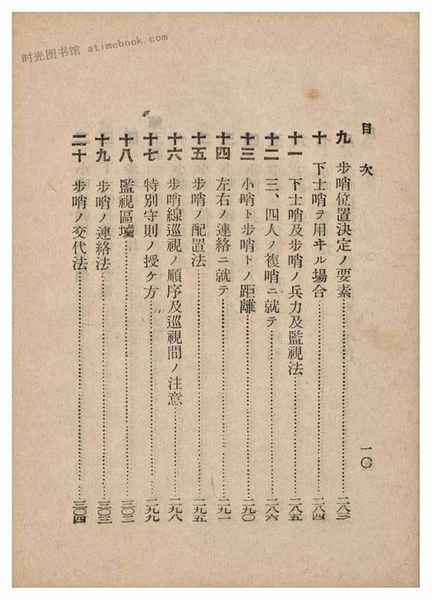 时光图书馆 atimebook.com
目次
九 步哨位置決定ノ要素 二八三
十 下士哨ヲ用ヰル場合 二八四
十一 下士哨及步哨ノ兵力及監視法 二八五
十二 三、四人ノ複哨ニ就テ 二八六
十三 小哨ト步哨トノ距離 二九〇
十四 左右ノ連絡ニ就テ 二九一
十五 步哨ノ配置法 二九五
十六 步哨線巡視ノ順序及巡視間ノ注意 二九八
十七 特別守則ノ授ケ方 二九九
十八 監視區域
十九 步哨ノ連絡法 三〇三
二十 步哨ノ交代法 三〇四
一〇